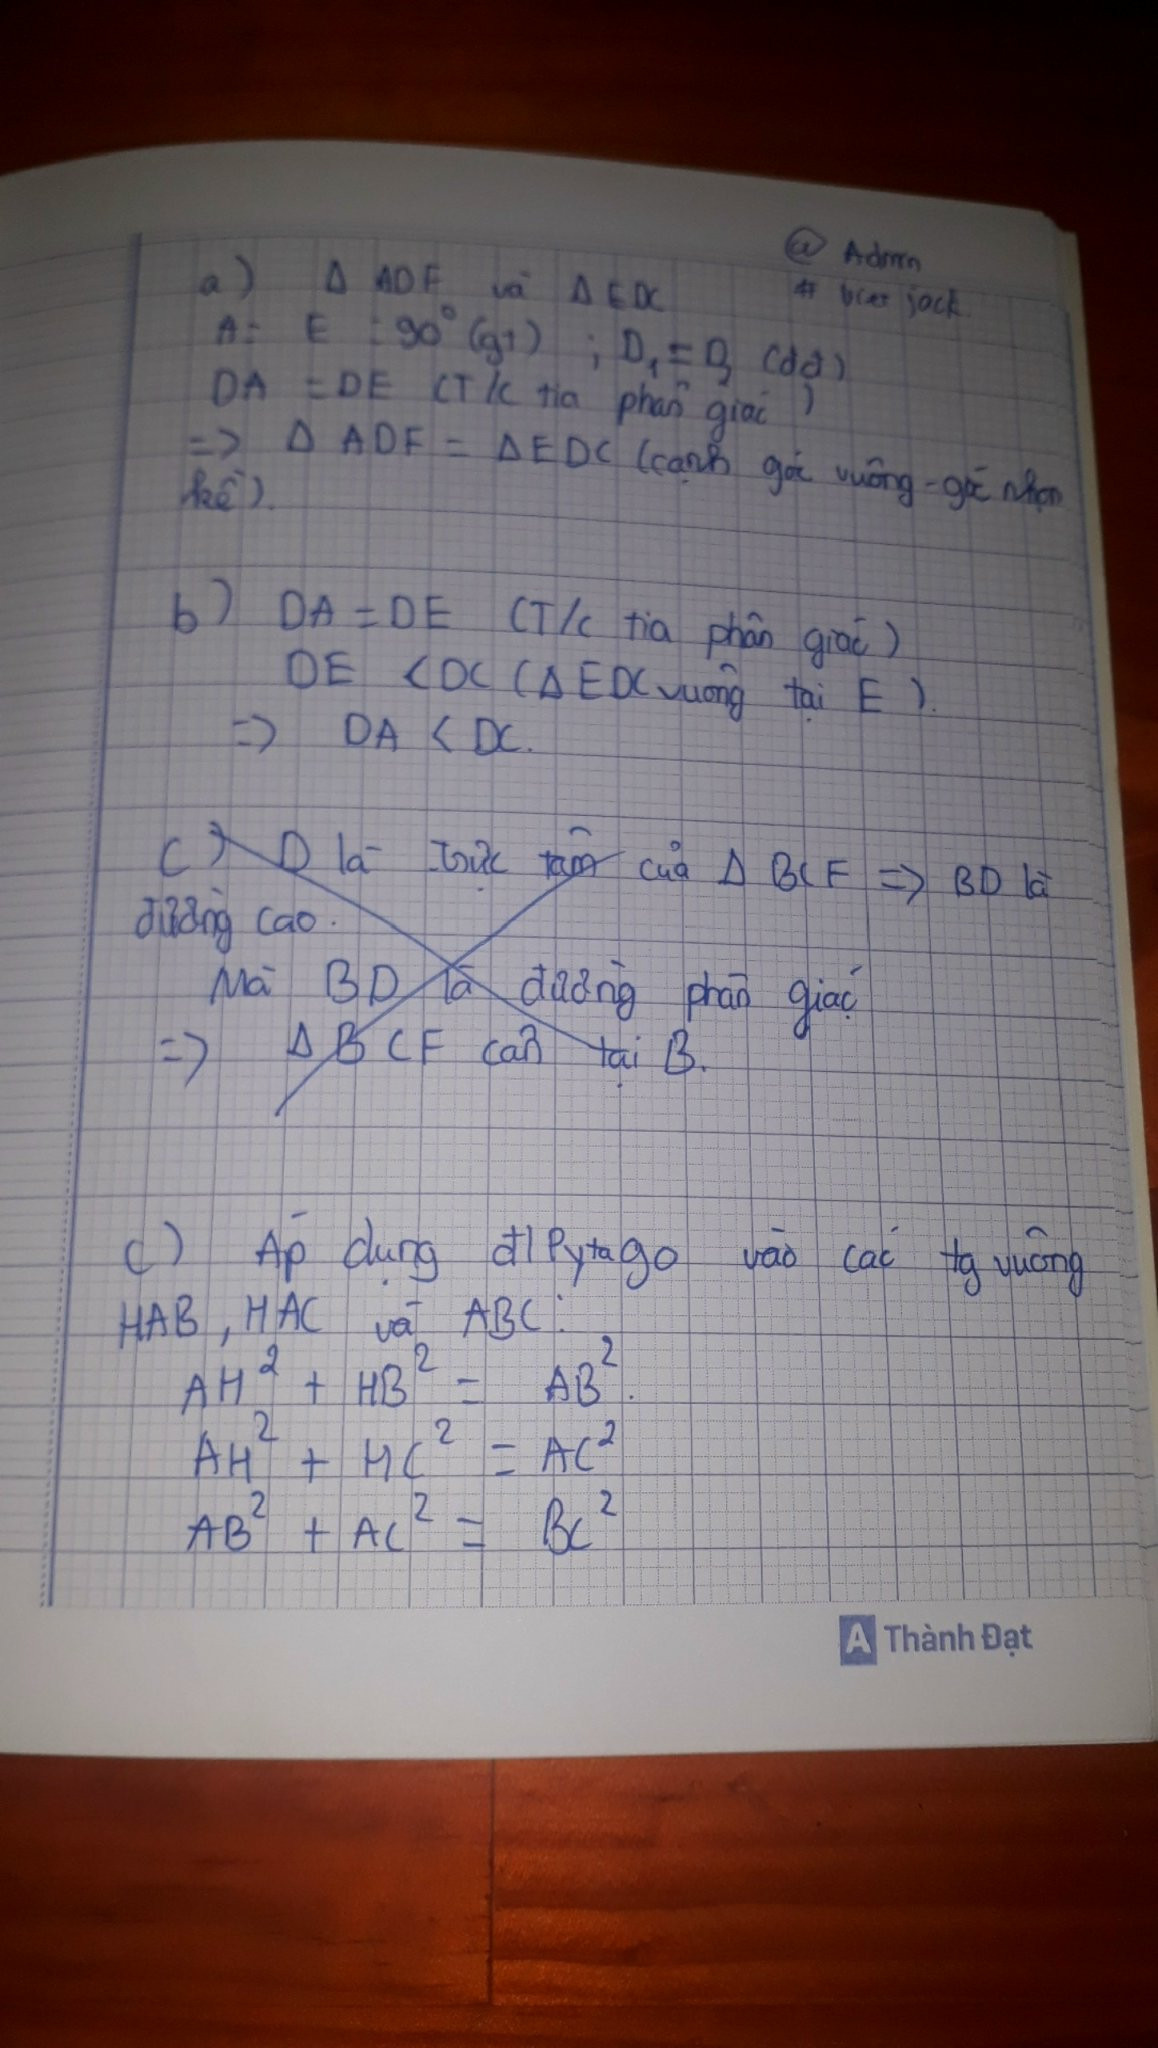 @ Admin
# viet jack
a) Δ ADF và Δ EDC
A = E = 90° (gt) ; D₁ = D₂ (đđ)
DA = DE (T/c tia phân giác)
=> Δ ADF = Δ EDC (cạnh góc vuông - góc nhọn
kề).
b) DA = DE (T/c tia phân giác)
DE < DC (Δ EDC vuông tại E).
=> DA < DC.
c) D là trực tâm của Δ BCF => BD là
đường cao.
Mà BD là đường phân giác
=> Δ BCF cân tại B.
c) Áp dụng đl Pytago vào các tg vuông
HAB, HAC và ABC:
AH² + HB² = AB².
AH² + HC² = AC²
AB² + AC² = BC²
A Thành Đạt